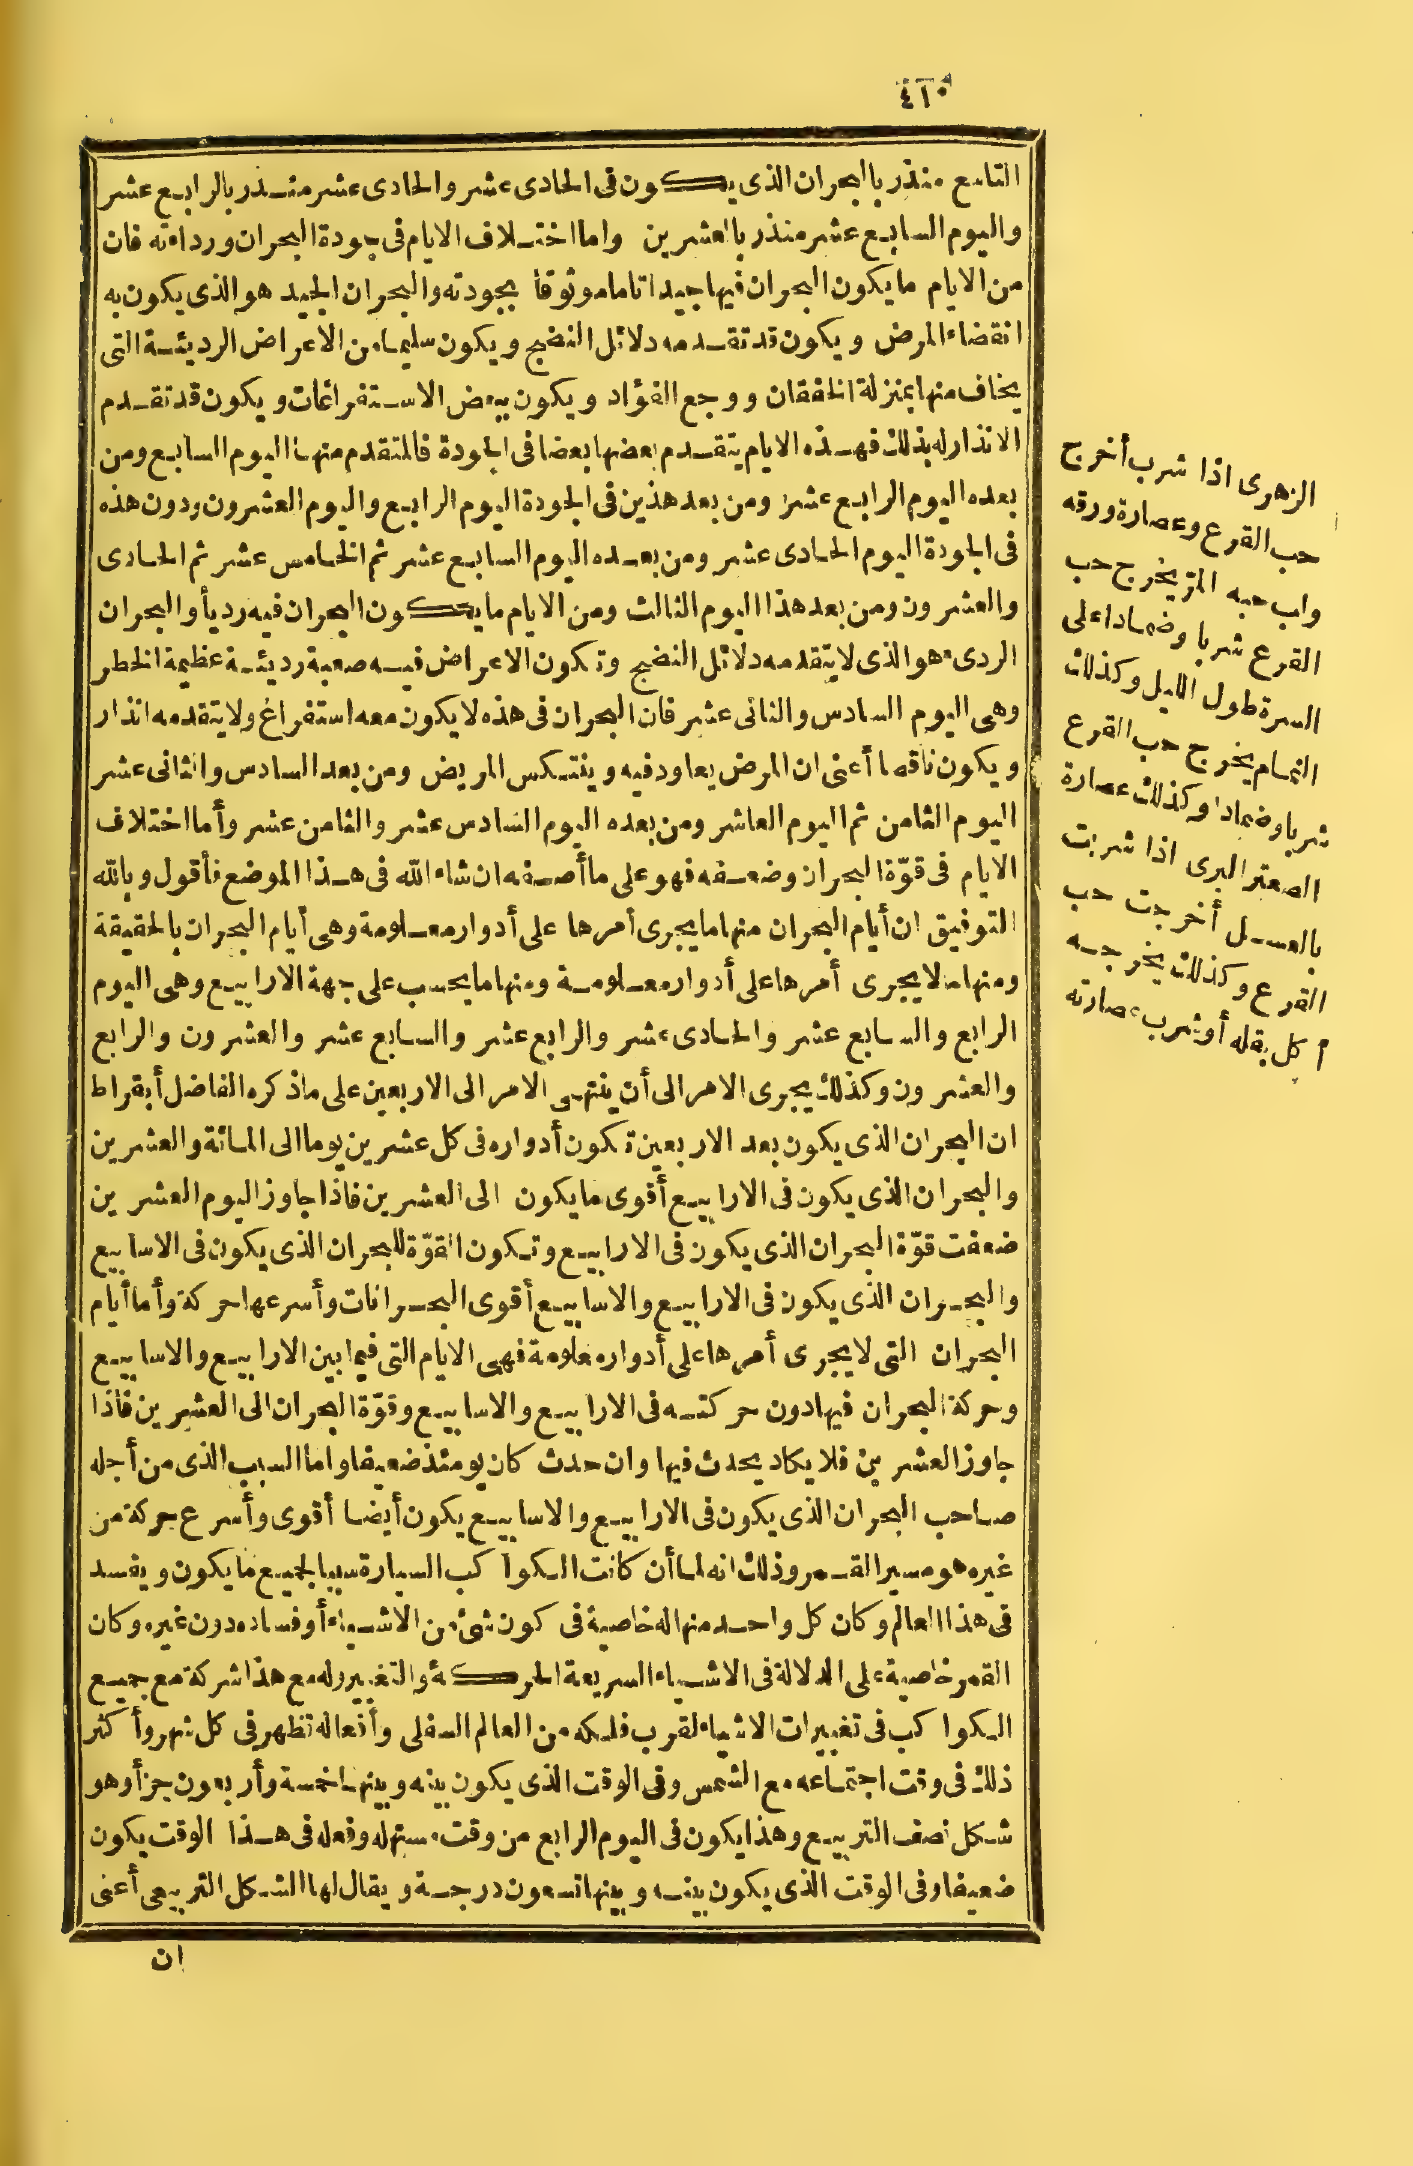 ٤١٠
التاسع منذر بالبحران الذى يكون فى الحادى عشر والحادى عشر منذر بالرابع عشر
واليوم السابع عشر منذر بالعشرين واما اختلاف الايام فى جودة البحران ورداءته فان
من الايام ما يكون البحران فيها جيدا تاما موثوقا بجودته والبحران الجيد هو الذى يكون به
انقضاء المرض ويكون قد تقدمه دلائل النضج ويكون سليما من الاعراض الرديئة التى
يخاف منها بمنزلة الخفقان ووجع الفؤاد ويكون ببعض الاستفراغات ويكون قد تقدم
الانذار له بذلك فهذه الايام يتقدم بعضها بعضا فى الجودة فالمتقدم منها اليوم السابع ومن
بعده اليوم الرابع عشر ومن بعد هذين فى الجودة اليوم الرابع واليوم العشرون ودون هذه
فى الجودة اليوم الحادى عشر ومن بعده اليوم السابع عشر ثم الخامس عشر ثم الحادى
والعشرون ومن بعد هذا اليوم الثالث ومن الايام ما يكون البحران فيه رديأ والبحران
الردىء هو الذى لا يتقدمه دلائل النضج وتكون الاعراض فيه صعبة رديئة عظيمة الخطر
وهى اليوم السادس والثانى عشر فان البحران فى هذه لا يكون معه استفراغ ولا يتقدمه انذار
ويكون ناقصا أعنى ان المرض يعاود فيه وينتكس المريض ومن بعد السادس والثانى عشر
اليوم الثامن ثم اليوم العاشر ومن بعده اليوم السادس عشر والثامن عشر وأما اختلاف
الايام فى قوّة البحران وضعفه فهو على ما أصفه ان شاء الله فى هذا الموضع فأقول وبالله
التوفيق ان أيام البحران منها ما يجرى أمرها على أدوار معلومة وهى أيام البحران بالحقيقة
ومنها ما لا يجرى أمرها على أدوار معلومة ومنها ما يحسب على جهة الارابيع وهى اليوم
الرابع والسابع عشر والحادى عشر والرابع عشر والسابع عشر والعشرون والرابع
والعشرون وكذلك يجرى الامر الى أن ينتهى الامر الى الاربعين على ما ذكره الفاضل أبقراط
ان البحران الذى يكون بعد الاربعين تكون أدواره فى كل عشرين يوما الى المائة والعشرين
والبحران الذى يكون فى الارابيع أقوى ما يكون الى العشرين فاذا جاوز اليوم العشرين
ضعفت قوّة البحران الذى يكون فى الارابيع وتكون القوّة للبحران الذى يكون فى الاسابيع
والبحران الذى يكون فى الارابيع والاسابيع أقوى البحرانات وأسرعها حركة وأما أيام
البحران التى لا يجرى أمرها على أدوار معلومة فهى الايام التى فيما بين الارابيع والاسابيع
وحركة البحران فيها دون حركته فى الارابيع والاسابيع وقوّة البحران الى العشرين فاذا
جاوز العشرين فلا يكاد يحدث فيها وان حدث كان يومئذ ضعيفا واما السبب الذى من أجله
صاحب البحران الذى يكون فى الارابيع والاسابيع يكون أيضا أقوى وأسرع حركة من
غيره هو مسير القمر وذلك انه لما أن كانت الكواكب السيارة سببا لجميع ما يكون ويفسد
فى هذا العالم وكان كل واحد منها له خاصية فى كون شئ من الاشياء أو فساده دون غيره وكان
القمر خاصية على الدلالة فى الاشياء السريعة الحركة والتغيير وله مع هذا شركة مع جميع
الكواكب فى تغييرات الاشياء لقرب فلكه من العالم السفلى وأفعاله تظهر فى كل شهر وأكثر
ذلك فى وقت اجتماعه مع الشمس وفى الوقت الذى يكون بينه وبينها خمسة وأربعون جزأ وهو
شكل نصف التربيع وهذا يكون فى اليوم الرابع من وقت مستهله وفعله فى هذا الوقت يكون
ضعيفا وفى الوقت الذى يكون بينه وبينها تسعون درجة ويقال لها الشكل التربيعى أعنى
ان
الزهرى اذا شرب أخرج
حب القرع وعصارة ورقه
ولب حبه المز يخرج حب
القرع شربا وضمادا على
السرة طول الليل وكذلك
النمام يخرج حب القرع
شربا وضمادا وكذلك عصارة
الصعتر البرى اذا شربت
بالعسل أخرجت حب
القرع وكذلك يخرجه
أكل بقله أو شرب عصارته